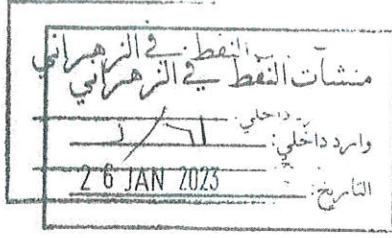 منشآت النفط في الزهراني
وارد داخلي:
التاريخ: 26 JAN 2023